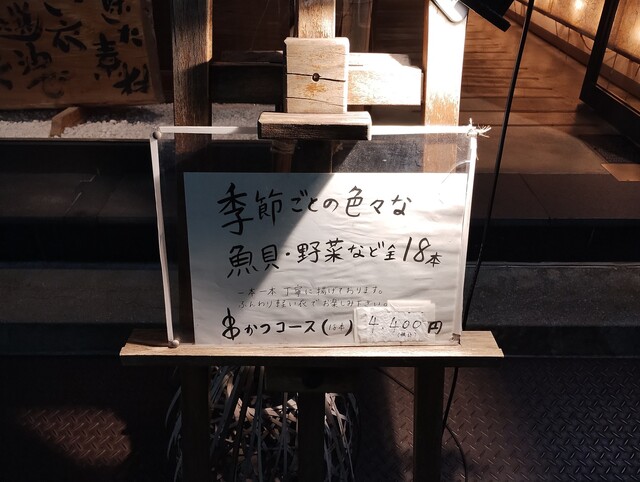 季節ごとの色々な
魚貝・野菜など全18本
一本一本 丁寧に揚げております。
ふんわり軽い衣でお楽しみ下さい。
串かつコース(18本) 4,400円
(税込)
素材